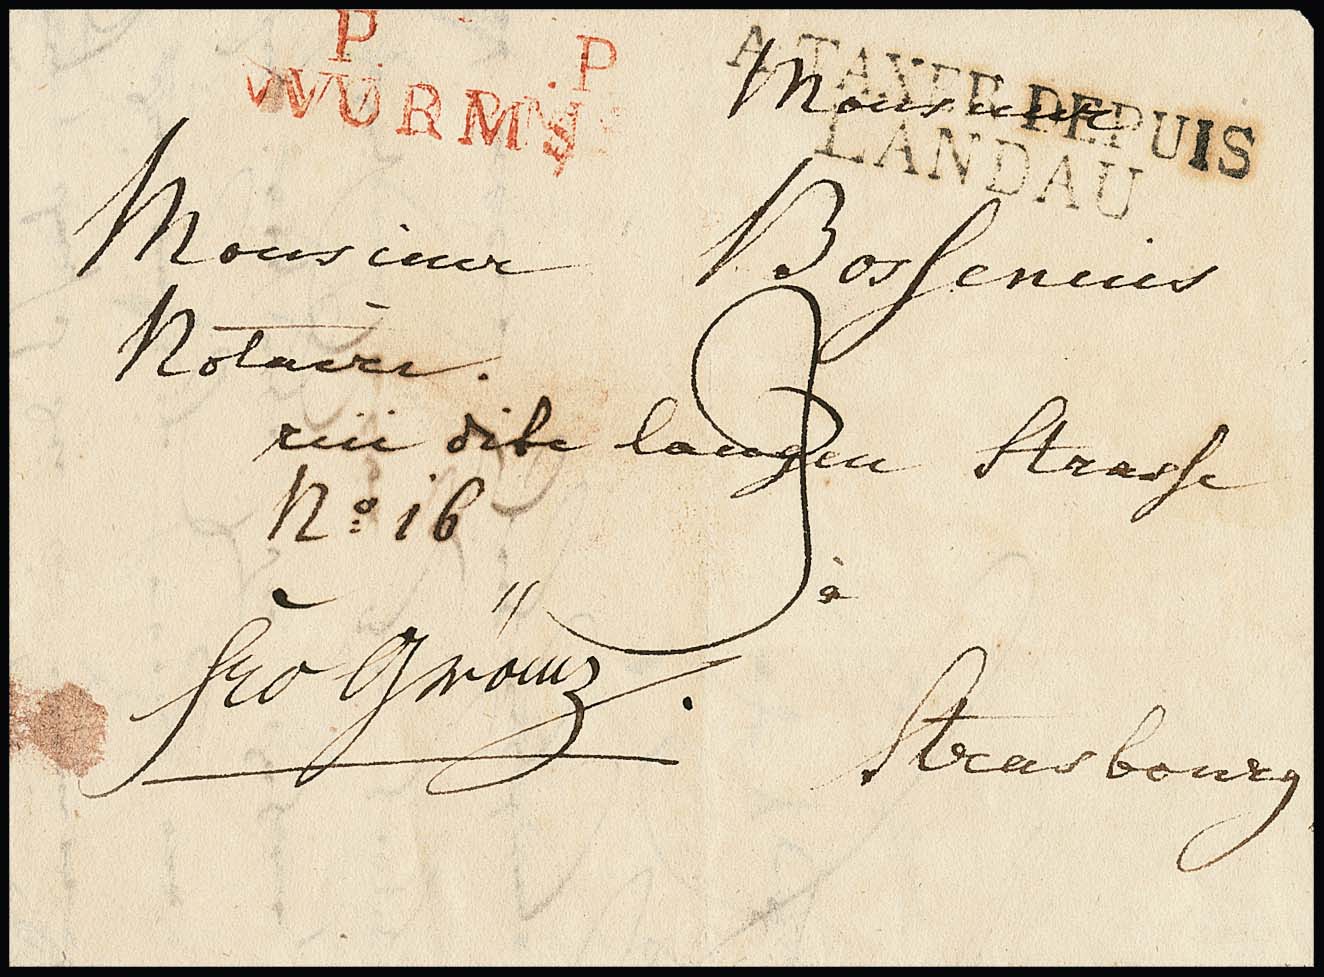 P. .P
WURMS
A TAXER DEPUIS
LANDAU
Monsieur
Monsieur Bossenius
Notaire.
rüe dite langen Strasse
No 16
3
à
fro Gränz.
Strasbourg